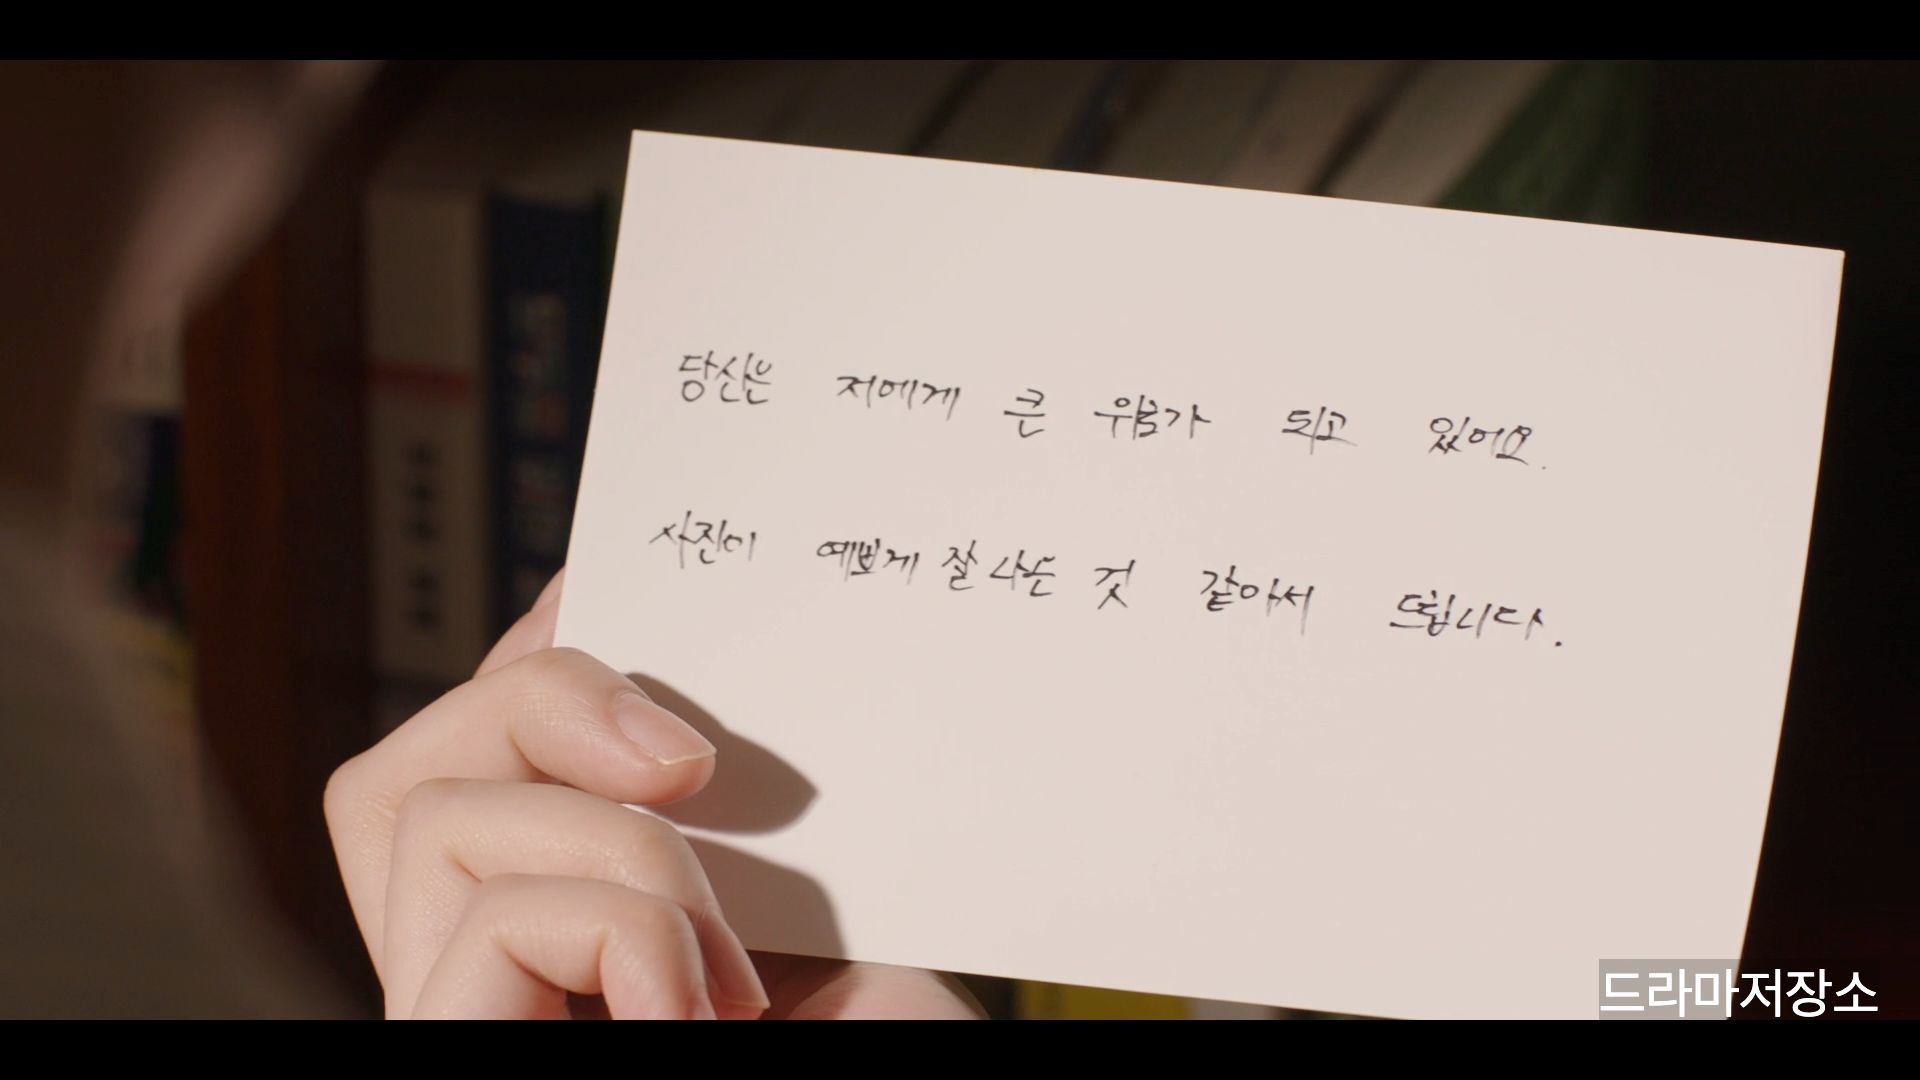 당신은 저에게 큰 위로가 되고 있어요.
사진이 예쁘게 잘 나온 것 같아서 드립니다.
드라마저장소